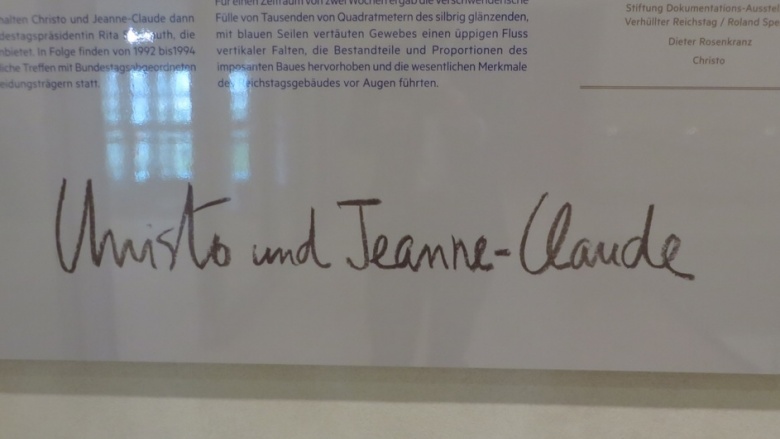 halten Christo und Jeanne-Claude dann
destagspräsidentin Rita die
nbietet. In Folge finden von 1992 bis 1994
liche Treffen mit Bundestagsabgeordneten
eidungsträgern statt.
Für einen Zeitraum von zwei Wochen ergab die verschwenderische
Fülle von Tausenden von Quadratmetern des silbrig glänzenden,
mit blauen Seilen vertäuten Gewebes einen üppigen Fluss
vertikaler Falten, die Bestandteile und Proportionen des
imposanten Baues hervorhoben und die wesentlichen Merkmale
des Reichstagsgebäudes vor Augen führten.
Stiftung Dokumentations-Ausstel
Verhüllter Reichstag / Roland Spe
Dieter Rosenkranz
Christo
Christo und Jeanne-Claude